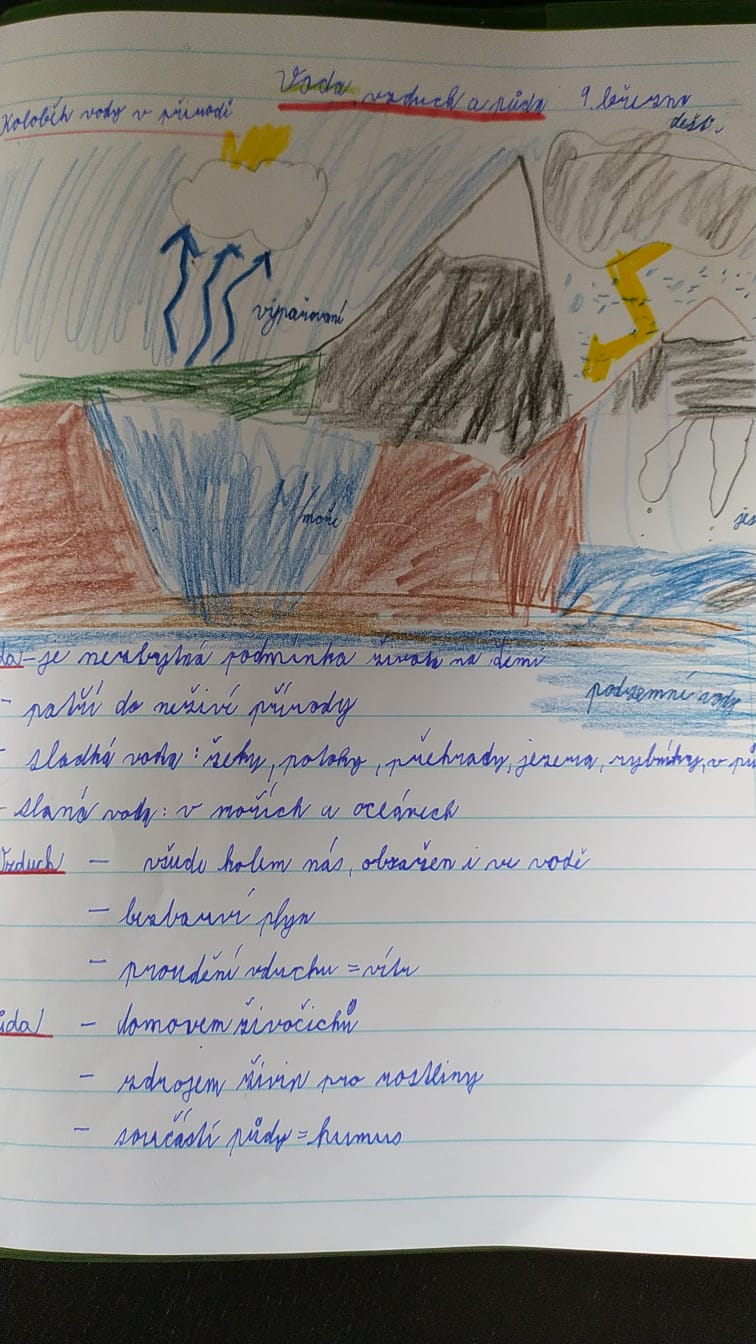 Voda, vzduch a půda 9. března
Koloběh vody v přírodě
déšť
vypařování
moře
je
da - je nezbytná podmínka života na Zemi
podzemní vody
- patří do neživé přírody
- sladká voda: řeky, potoky, přehrady, jezera, rybníky, v pů
- slaná voda: v mořích a oceánech
Vzduch - všude kolem nás, obsažen i ve vodě
- bezbarví plyn
- proudění vduchu = vítr
ůda - domovem živočichů
- zdrojem živin pro rostliny
- součástí půdy = humus